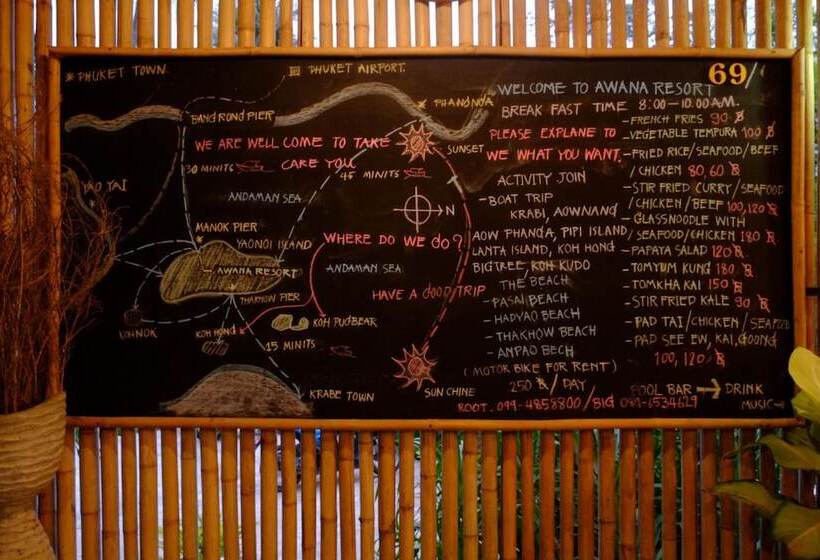 * PHUKET TOWN.
PHUKET AIRPORT.
69/
PHANDNGA
BAND ROND PIER
WE ARE WELL COME TO TAKE
CARE YOU
SUNSET
30 MINITS
45 MINITS
YAO YAI
ANDAMAN SEA
N
MANOK PIER
YAONOI ISLAND
WHERE DO WE do?
AWANA RESORT
ANDAMAN SEA
THAKHOW PIER
HAVE A GOOD TRIP
KOHNOK
KOH HONG
KOH PUDBEAR
15 MINITS
KRABE TOWN
SUN CHINE
WELCOME TO AWANA RESORT
BREAK FAST TIME 8:00-10.00 A.M.
PLEASE EXPLANE TO
WE WHAT YOU WANT.
ACTIVITY JOIN
- BOAT TRIP
KRABI, AOWNANG
AOW PHANGA, PIPI ISLAND
LANTA ISLAND, KOH HONG
BIGTREE/KOH KUDO
THE BEACH
- PASAI BEACH
- HADYAO BEACH
- THAKHOW BEACH
- ANPAO BECH
(MOTOR BIKE FOR RENT)
250 ฿/DAY
ROOT. 099-4858800/BIG 089-6534629
- FRENCH FRIES 90 ฿
- VEGETABLE TEMPURA 100 ฿
- FRIED RICE/SEAFOOD/BEEF
/CHICKEN 80,60 ฿
- STIR FRIED CURRY/SEAFOOD
/CHICKEN/BEEF 100,120 ฿
- GLASSNOODLE WITH
/SEAFOOD/CHICKEN 180 ฿
- PAPAYA SALAD 120 ฿
- TOMYUM KUNG 180 ฿
- TOMKHA KAI 150 ฿
- STIR FRIED KALE 90 ฿
- PAD TAI/CHICKEN/SEAFOOD
- PAD SEE EW, KAI, GOONG
100, 120 ฿
POOL BAR → DRINK
MUSIC